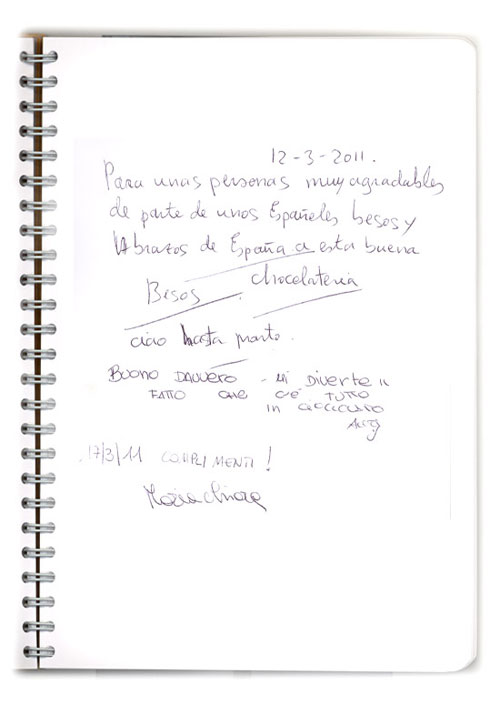 12-3-2011.
Para unas personas muy agradables
de parte de unos Españoles besos y
Abrazos de España a esta buena
chocolateria
Besos
ciao hasta pronto.
BUONO DAVVERO - MI DIVERTE IL
FATTO CHE C'È TUTTO
IN CIOCCOLATO
17/3/11 COMPLIMENTI!